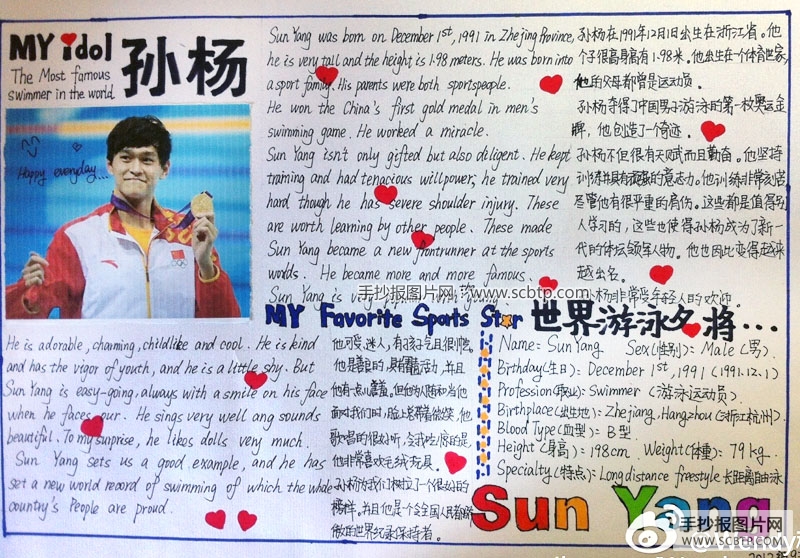 MY idol
The Most famous
swimmer in the world
孙杨
Happy everyday...
Sun Yang was born on December 1st, 1991 in Zhejing Province,
he is very tall and the height is 1.98 meters. He was born into
a sport family. His parents were both sportspeople.
He won the China's first gold medal in men's
swimming game. He worked a miracle.
Sun Yang isn't only gifted but also diligent. He kept
training and had tenacious willpower, he trained very
hard though he has severe shoulder injury. These
are worth learning by other people. These made
Sun Yang became a new frontrunner at the sports
worlds. He became more and more famous.
Sun Yang is very
孙杨在1991年12月1日出生在浙江省。他
个子很高身高有1.98米。他出生在个体育世家,
他的父母都曾是运动员。
孙杨夺得了中国男子游泳的第一枚奥运金
牌,他创造了一个奇迹。
孙杨不但很有天赋而且勤奋。他坚持
训练并具有顽强的意志力。他训练非常刻苦
尽管他有很严重的肩伤。这些都是值得别
人学习的,这些也使得孙杨成为了新一
代的体坛领军人物。他也因此变得越来
越出名。
孙杨非常受年轻人的欢迎
手抄报图片网 www.scbtp.com
MY Favorite Sports Star 世界游泳名将...
He is adorable, charming, childlike and cool. He is kind
and has the vigor of youth, and he is a little shy. But
Sun Yang is easy-going, always with a smile on his face
when he faces our. He sings very well ang sounds
beautiful. To my surprise, he likes dolls very much.
Sun Yang sets us a good example, and he has
set a new world record of swimming of which the whole
country's People are proud.
他可爱,迷人,有孩子气且很酷。
他是善良的,具有青春活力,并且
他有一点儿害羞。但他为人随和当他
面对我们时,脸上老带着微笑。他
歌唱的很好听,令我吃惊的是,
他非常喜欢毛绒玩具。
孙杨给我们树立了一个很好的
榜样。并且他是个令全国人民都骄
傲的世界纪录保持者。
Name: Sun Yang Sex(性别): Male (男).
Birthday(生日): December 1st, 1991 (1991.12.1)
Profession(职业): Swimmer (游泳运动员).
Birthplace(出生地): Zhejiang, Hangzhou (浙江杭州).
Blood Type(血型): B型.
Height(身高): 198cm Weight(体重): 79 kg.
Specialty(特点): Long distance freestyle 长距离自由泳
Sun Yang
手抄报图片网
WWW.SCBTP.COM